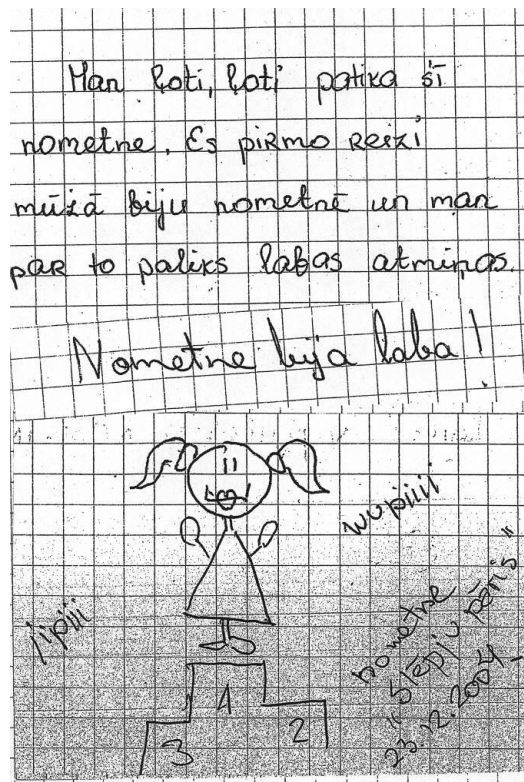 Man ļoti, ļoti patika šī
nometne. Es pirmo reizi
mūžā biju nometnē un man
par to paliks labas atmiņas.
Nometne bija laba!
wupiiii
jipiii
nometne
"Slēpju pāris"
23.12.2004.
1
2
3